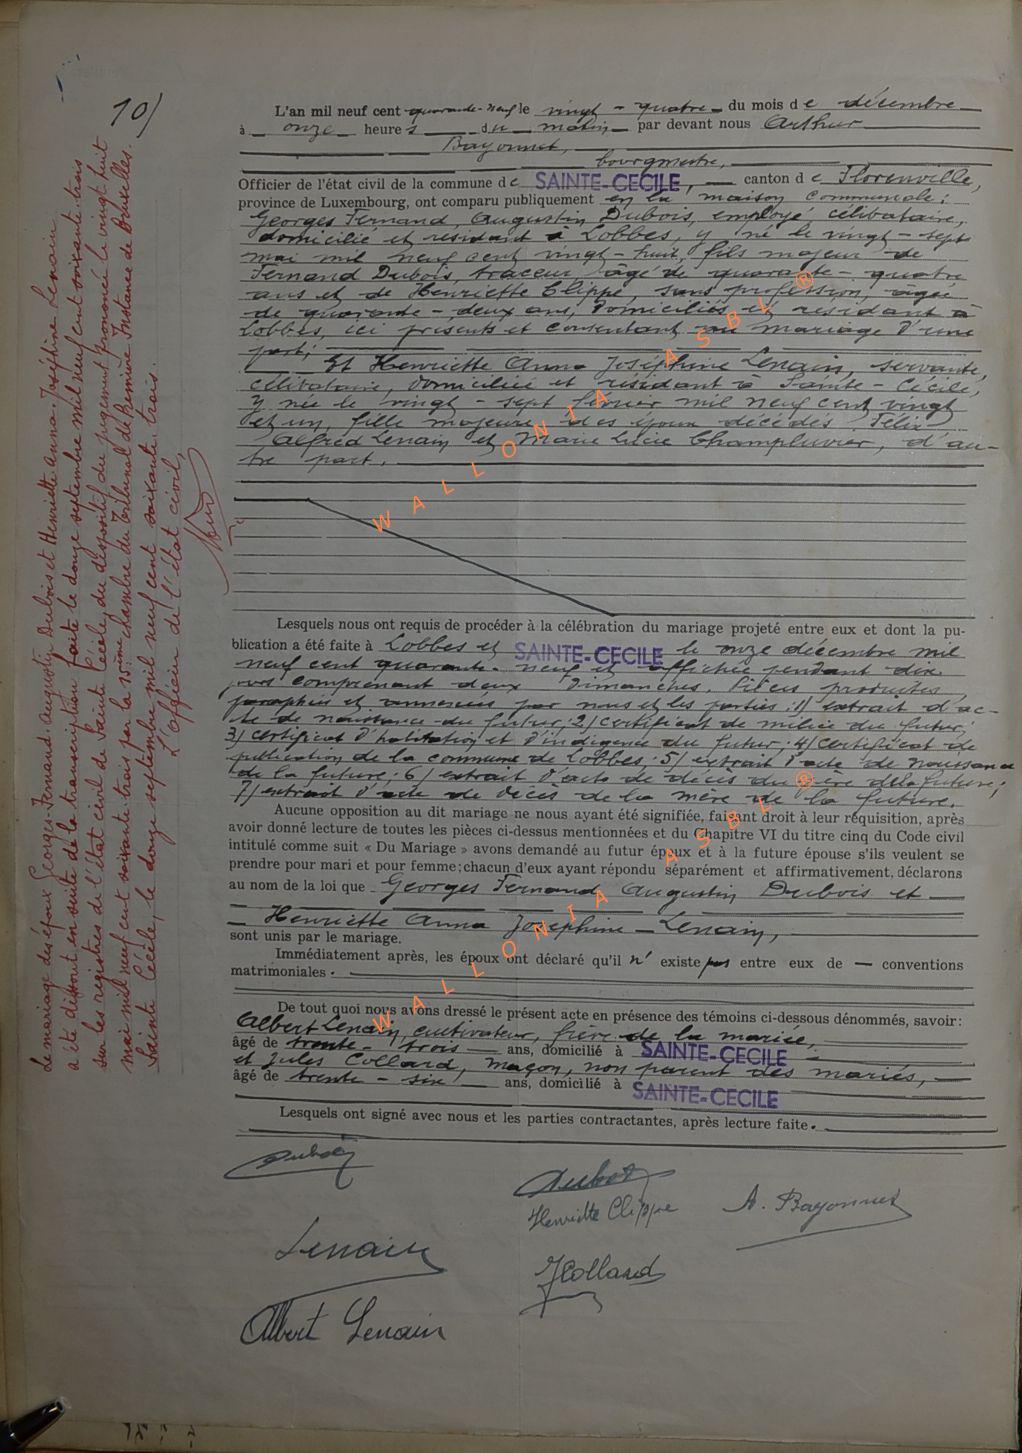 10/
L'an mil neuf cent quarante-neuf le vingt-quatre du mois de décembre
à onze heures du matin par devant nous Arthur
Bayonnet,
bourgmestre,
Officier de l'état civil de la commune de SAINTE-CECILE, canton de Florenville,
province de Luxembourg, ont comparu publiquement en la maison communale:
Georges Fernand, Augustin Dubois, employé, célibataire,
domicilié et résidant à Lobbes, y né le vingt-sept
mai mil neuf cent vingt-huit, fils majeur de
Fernand Dubois, traceur, âgé de quarante-quatre
ans et de Henriette Clippe, sans profession, âgée
de quarante-deux ans, domiciliés et résidant à
Lobbes, ici présents et consentant au mariage d'une
part;
Et Henriette Anna Joséphine Lenain, servante,
célibataire, domiciliée et résidant à Sainte-Cécile,
y née le vingt-sept février mil neuf cent vingt
et un, fille majeure des époux décédés Félix
Alfred Lenain et Marie Lucie Champluvier, d'au-
tre part.
Lesquels nous ont requis de procéder à la célébration du mariage projeté entre eux et dont la pu-
blication a été faite à Lobbes et SAINTE-CECILE le onze décembre mil
neuf cent quarante-neuf et affichée pendant dix
jours comprenant deux dimanches. Pièces produites,
paraphées et annexées par nous et les parties: 1) extrait d'ac-
te de naissance du futur; 2) certificat de milice du futur;
3) certificat d'habitation et d'indigence du futur; 4) certificat de
publication de la commune de Lobbes; 5) extrait d'acte de naissance
de la future; 6) extrait d'acte de décès du père de la future;
7) extrait d'acte de décès de la mère de la future.
Aucune opposition au dit mariage ne nous ayant été signifiée, faisant droit à leur réquisition, après
avoir donné lecture de toutes les pièces ci-dessus mentionnées et du Chapitre VI du titre cinq du Code civil
intitulé comme suit « Du Mariage » avons demandé au futur époux et à la future épouse s'ils veulent se
prendre pour mari et pour femme; chacun d'eux ayant répondu séparément et affirmativement, déclarons
au nom de la loi que Georges Fernand Augustin Dubois et
Henriette Anna Joséphine Lenain,
sont unis par le mariage.
Immédiatement après, les époux ont déclaré qu'il n'existe pas entre eux de conventions
matrimoniales.
De tout quoi nous avons dressé le présent acte en présence des témoins ci-dessous dénommés, savoir:
Albert Lenain, cultivateur, frère de la mariée,
âgé de trente-trois ans, domicilié à SAINTE-CECILE
et Jules Collard, maçon, non parent des mariés,
âgé de trente-six ans, domicilié à SAINTE-CECILE
Lesquels ont signé avec nous et les parties contractantes, après lecture faite.
Dubois
Dubois
Henriette Clippe
A. Bayonnet
Lenain
J Collard
Albert Lenain
Le mariage des époux Georges-Fernand-Augustin Dubois et Henriette Anna Joséphine Lenain
a été dissout en suite de la transcription faite le douze septembre mil neuf cent soixante trois
sur les registres de l'état civil de Sainte Cécile, du dispositif du jugement prononcé le vingt huit
mai mil neuf cent soixante trois par la 15ième chambre du Tribunal de Première Instance de Bruxelles.
Sainte Cécile, le douze septembre mil neuf cent soixante trois.
L'Officier de l'état civil,
WALLONIA ASBL ®
WALLONIA ASBL ®